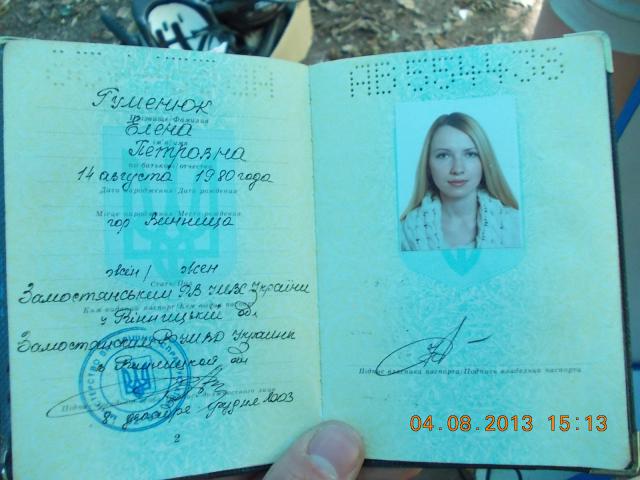 Гуменюк
Прізвище/Фамилия
Елена
Ім'я/Имя
Петровна
по батькові/отчество
14 августа 1980 года
Дата народження/Дата рождения
Місце народження/Место рождения
гор Винница
жін/жен
Стать/Пол
Замостянським РВ УМВС України
Ким виданий паспорт/Кем выдан паспорт
у Вінницькій обл
Замостянским РО УМВД Украины
в Винницкой обл
декабре грудня 2003
2
АВ 554436
Підпис власника паспорта/Подпись владельца паспорта
04.08.2013 15:13